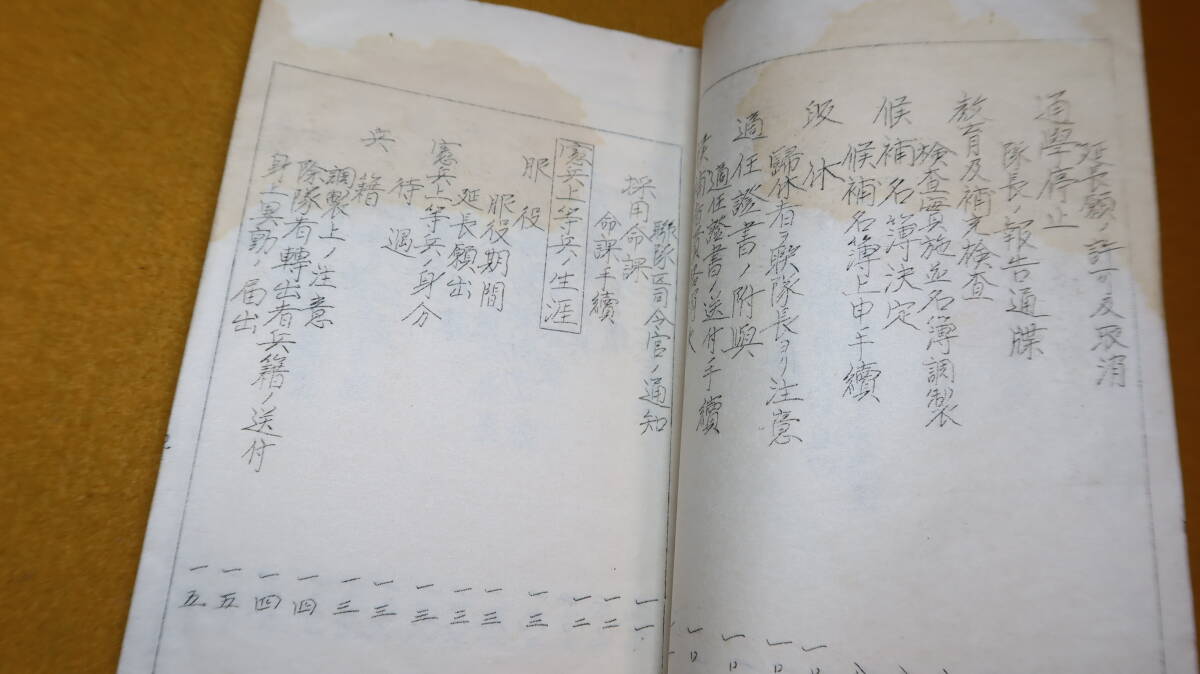 延長願ノ許可及取消
通學停止
隊長ノ報告通牒
教育及補充檢査
檢査實施並名簿調製
候補名簿決定
候補名簿上申手續
歸休
歸休者ヲ聯隊長ヨリ注意
適任證書ノ附與
適任證書ノ送付手續
聯隊区司令官ノ通知 一一
採用命課 一二
命課手續 一二
憲兵上等兵ノ生涯
服役 一三
服役期間 一三
延長願出 一三
憲兵上等兵ノ身分 一三
待遇 一三
兵籍 一三
調製上ノ注意 一四
除隊者轉出者兵籍ノ送付 一四
身上異動ノ届出 一五
一五